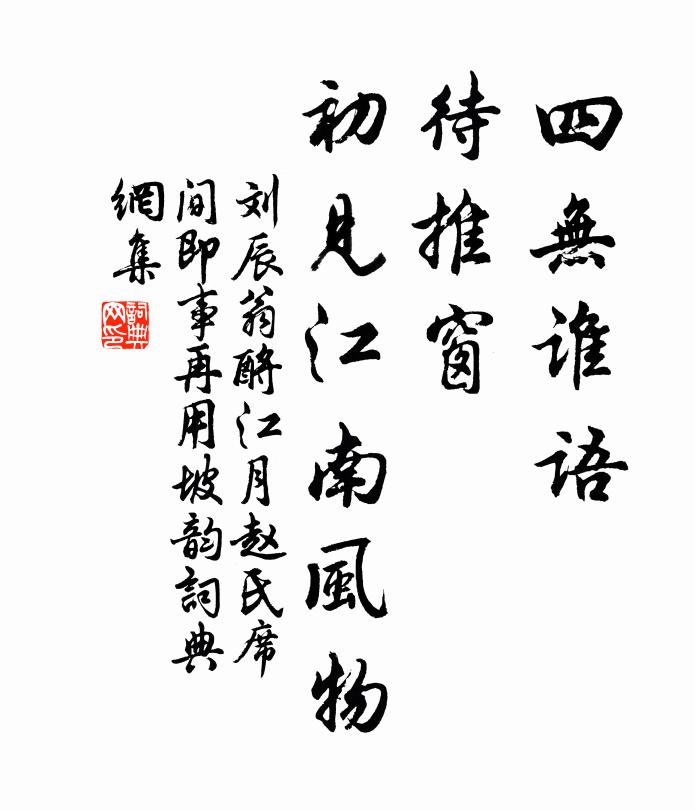 四無誰語
待推窗
初見江南風物
刘辰翁酹江月赵氏席
间即事再用坡韵詞典
網集
詞典
网印